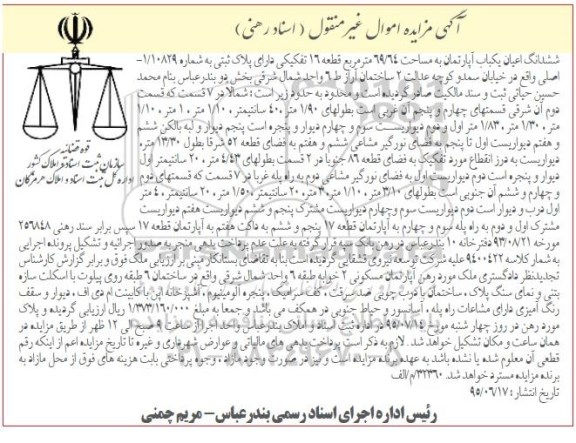 آگهی مزایده اموال غیرمنقول ( اسناد رهنی)
قوه قضائیه
سازمان ثبت اسناد و املاک کشور
اداره کل ثبت اسناد و املاک هرمزگان
ششدانگ اعیان یکباب آپارتمان به مساحت ۶۹/۶۴ مترمربع قطعه ۱۶ تفکیکی دارای پلاک ثبتی به شماره ۱/۱۰۸۲۹-
اصلی واقع در خیابان سعدو کوچه عدالت ۲ ساختمان آراز ط ۶ واحد شمال شرقی بخش دو بندرعباس بنام محمد
حسین حیاتی ثبت و سند مالکیت صادر گردیده است و محدود به حدود زیر است : شمالا در ۷ قسمت که قسمت
دوم آن شرقی قسمتهای چهارم و پنجم آن غربی است بطولهای ۱/۹۰ متر، ۴۰ سانتیمتر، ۱/۱۰۰ متر ۱۰ متر، ۱/۱۰
متر، ۱/۳۰ متر ۱/۸۳۰ متر اول و دوم دیواریست سوم و چهارم دیوار و پنجره است پنجم دیوار و لبه بالکن ششم
و هفتم دیواریست اول تا پنجم به فضای نورگیر مشاعی ششم و هفتم به فضای قطعه ۵۲ شرقا بطول ۱۳/۳۰ متر
دیواریست به درز انقطاع مورد تفکیک به فضای قطعه ۸۶ جنوبا در ۲ قسمت بطولهای ۴/۴۳ متر ۲۰۰ سانتیمتر اول
دیوار و پنجره است دوم دیواریست اول به فضای نورگیر مشاعی دوم به راه پله غربا در ۷ قسمت که قسمتهای دوم
و چهارم و ششم آن جنوبی است بطولهای ۳/۱۰ متر ۱/۱۰۰ متر، ۲۰ سانتیمتر، ۱/۵۰ متر، ۲۰ سانتیمتر، ۴۰ متر
اول درب و دیوار است دوم دیواریست سوم و چهارم دیواریست مشترک پنجم و ششم دیواریست هفتم دیواریست
مشترک اول و دوم به راه پله سوم و چهارم به آپارتمان قطعه ۱۷ پنجم و ششم به داکت هفتم به آپارتمان قطعه ۱۷ سپس برابر سند رهنی ۲۵۶۸۴۸
مورخه ۹۳/۰۸/۲۱ دفترخانه ۱۰ بندرعباس در رهن بانک سپه قرار گرفته که به علت عدم پرداخت بدهی منجر به صدور اجرائیه و تشکیل پرونده اجرایی
به شماره کلاسه ۹۴۰۰۴۲۲ علیه شرکت توسعه نیروی قشقایی گردیده است بنا به تقاضای بستانکار مبنی بر ارزیابی ملک فوق و برابر گزارش کارشناس
تجدیدنظر دادگستری ملک مورد رهن آپارتمان مسکونی ۲ خوابه طبقه ۶ واحد شمال شرقی واقع در ساختمان ۶ طبقه روی پیلوت با اسکلت سازه
بتنی و نمای سنگ پلاک ، ساختمان با درب چوبی ضد سرقت ، کف سرامیک ، پنجره آلومینیوم ، آشپزخانه اپن با کابینت ام دی اف ، دیوار و سقف
رنگ آمیزی دارای مشاعات راه پله ، آسانسور و حیاط جنوبی در همکف می باشد و جمعا به مبلغ ۱/۳۷۳/۱۶۰/۰۰۰ ریال ارزیابی گردیده و پلاک
مورد رهن در روز چهار شنبه مورخ ۹۵/۰۷/۱۴ در اداره ثبت اسناد و املاک بندرعباس واحد اجرا از ساعت ۹ صبح الی ۱۲ ظهر از طریق مزایده در
همان ساعت و مکان تشکیل خواهد شد. لازم به ذکر است پرداخت بدهی های مالیاتی و عوارض شهرداری و غیره تا تاریخ مزایده اعم از اینکه رقم
قطعی آن معلوم شده یا نشده باشد به عهده برنده مزایده است و نیز در صورت وجود مازاد ، وجوه پرداختی بابت هزینه های فوق از محل مازاد به
برنده مزایده مسترد خواهد شد. ۳۲۳۶۰/م/الف
تاریخ انتشار: ۹۵/۰۶/۱۷
رئیس اداره اجرای اسناد رسمی بندرعباس- مریم چمنی